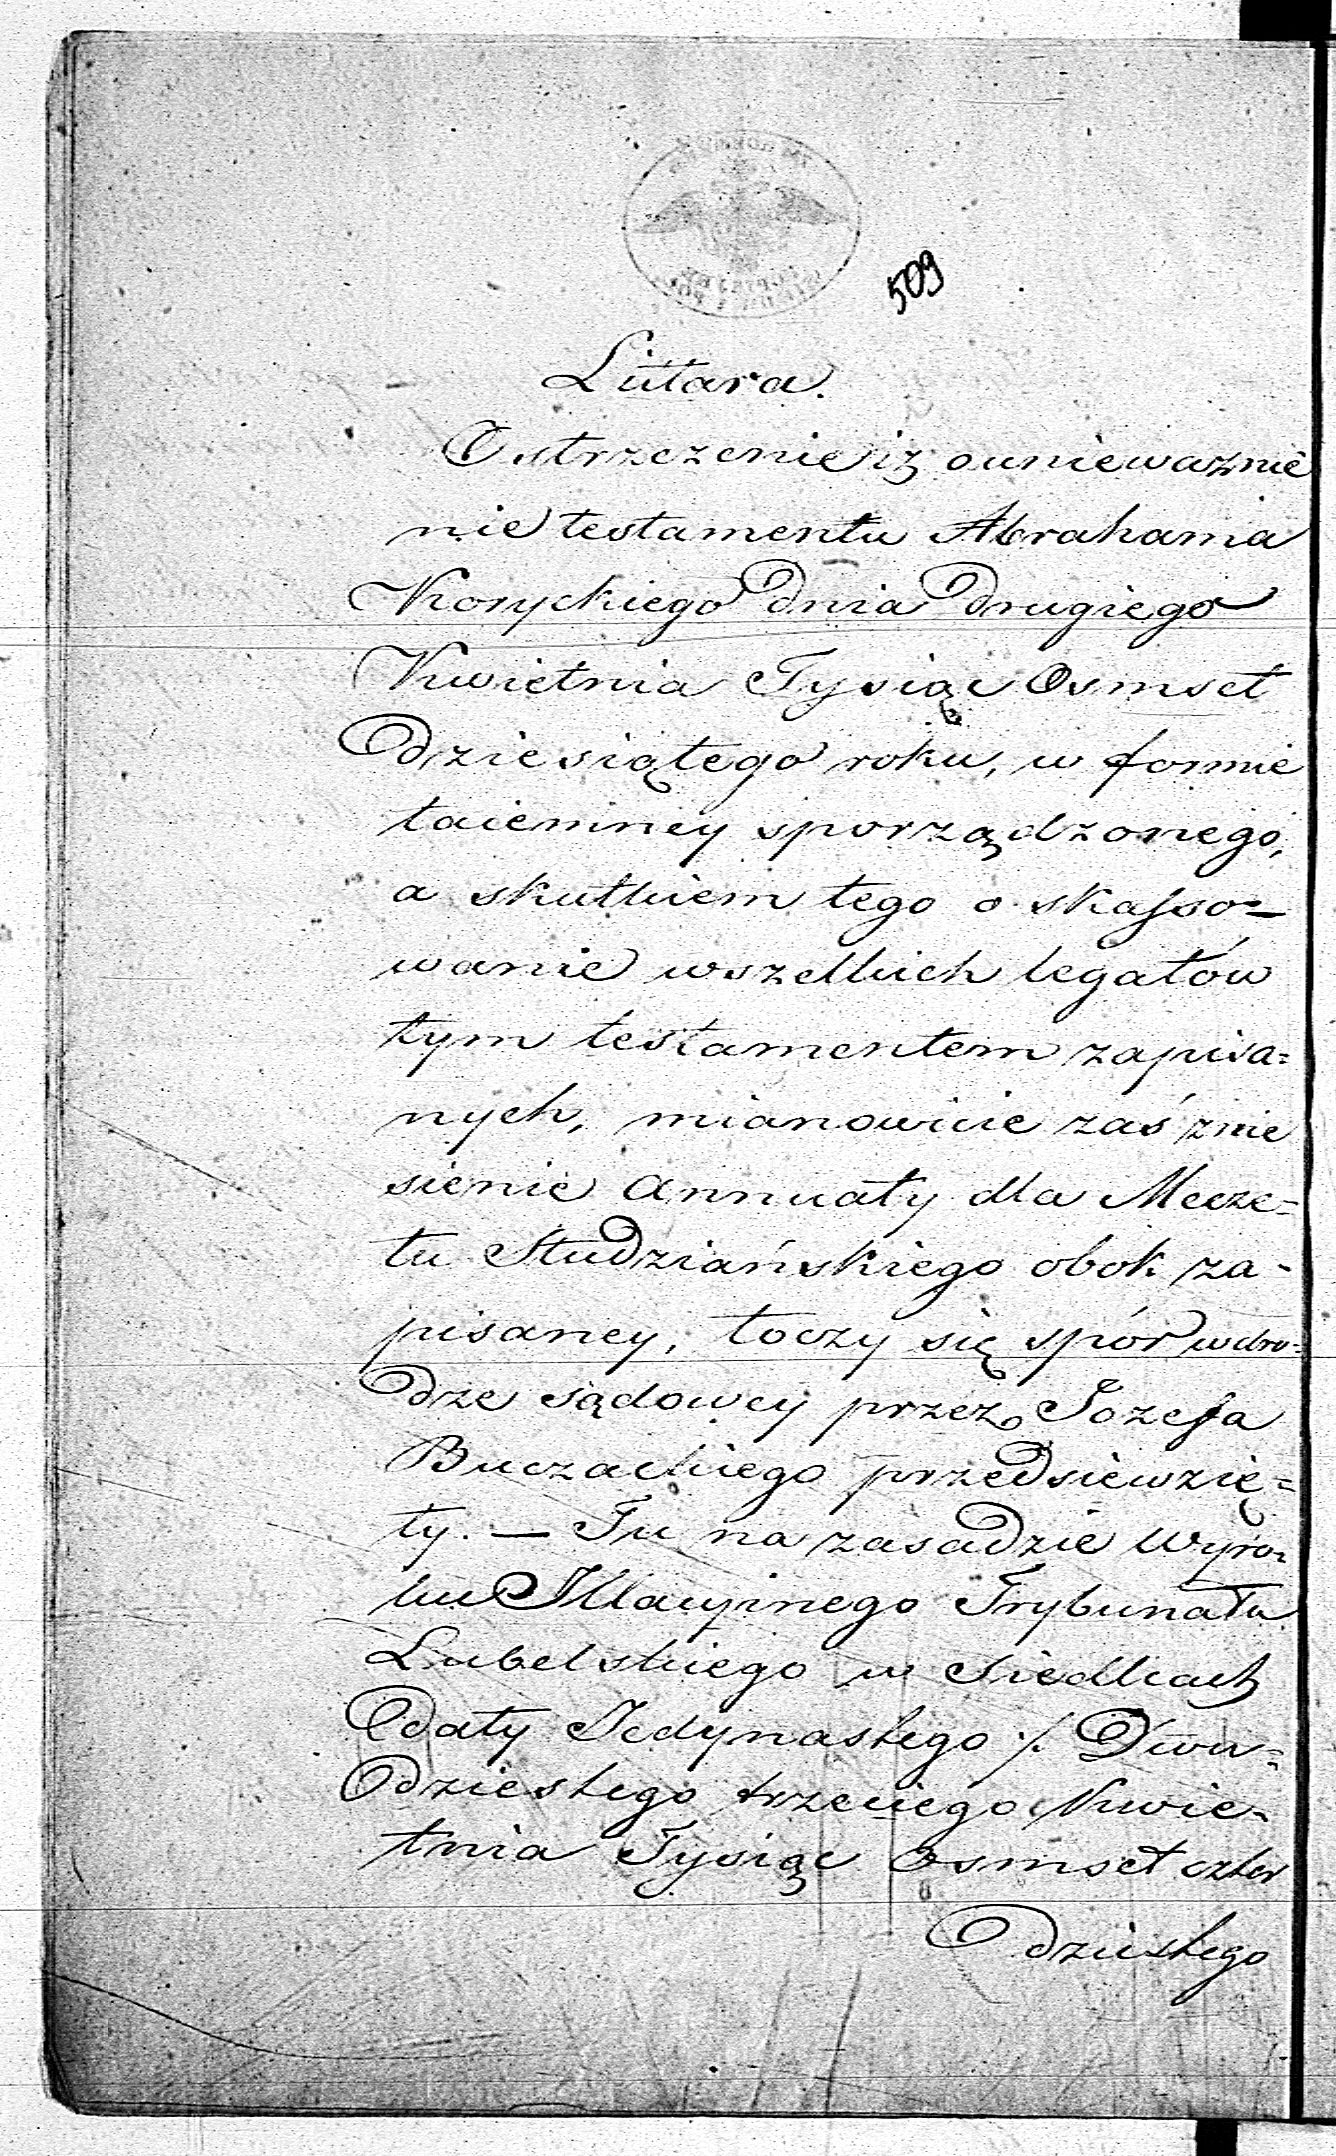 509
Litara.
Ostrzeżenie iż o unieważnie
nie testamentu Abrahama
Koryckiego dnia drugiego
Kwietnia Tysiąc Osmset
dziesiątego roku, w formie
taiemney sporządzonego,
a skutkiem tego o skasso-
wanie wszelkich legatów
tym testamentem zapisa=
nych, mianowicie zaś znie
sienie annuaty dla Mecze=
tu Studziańskiego obok za-
pisaney, toczy się spór w dro=
dze sądowey przez Jozefa
Buczackiego przedsiewzię=
ty. — Tu na zasadzie Wyro=
ku Illacyinego Trybunału
Lubelskiego w Siedlcach
daty Jedynastego /. Dwu=
dziestego trzeciego Kwie-
tnia Tysiąc Osmset czter
dziestego